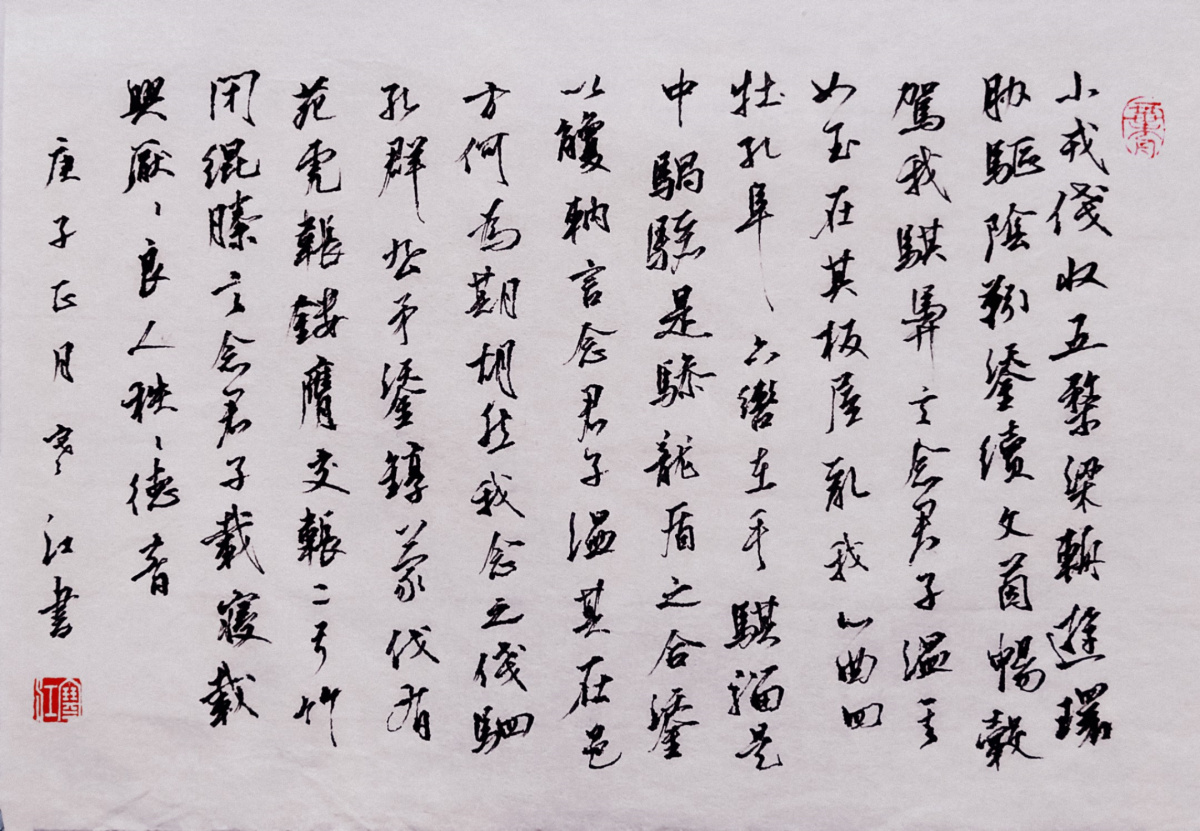 小戎俴收五楘梁輈遊環
胁驅陰靷鋈續文茵暢轂
駕我騏馵言念君子溫其
如玉在其板屋亂我心曲四
牡孔阜六轡在手騏騮是
中騧驪是驂龍盾之合鋈
以觼軜言念君子溫其在邑
方何為期胡然我念之俴駟
孔群厹矛鋈錞蒙伐有
苑虎韔鏤膺交韔二弓竹
閉緄縢言念君子載寢載
興厭〻良人秩〻德音
庚子正月寒江書
寒江